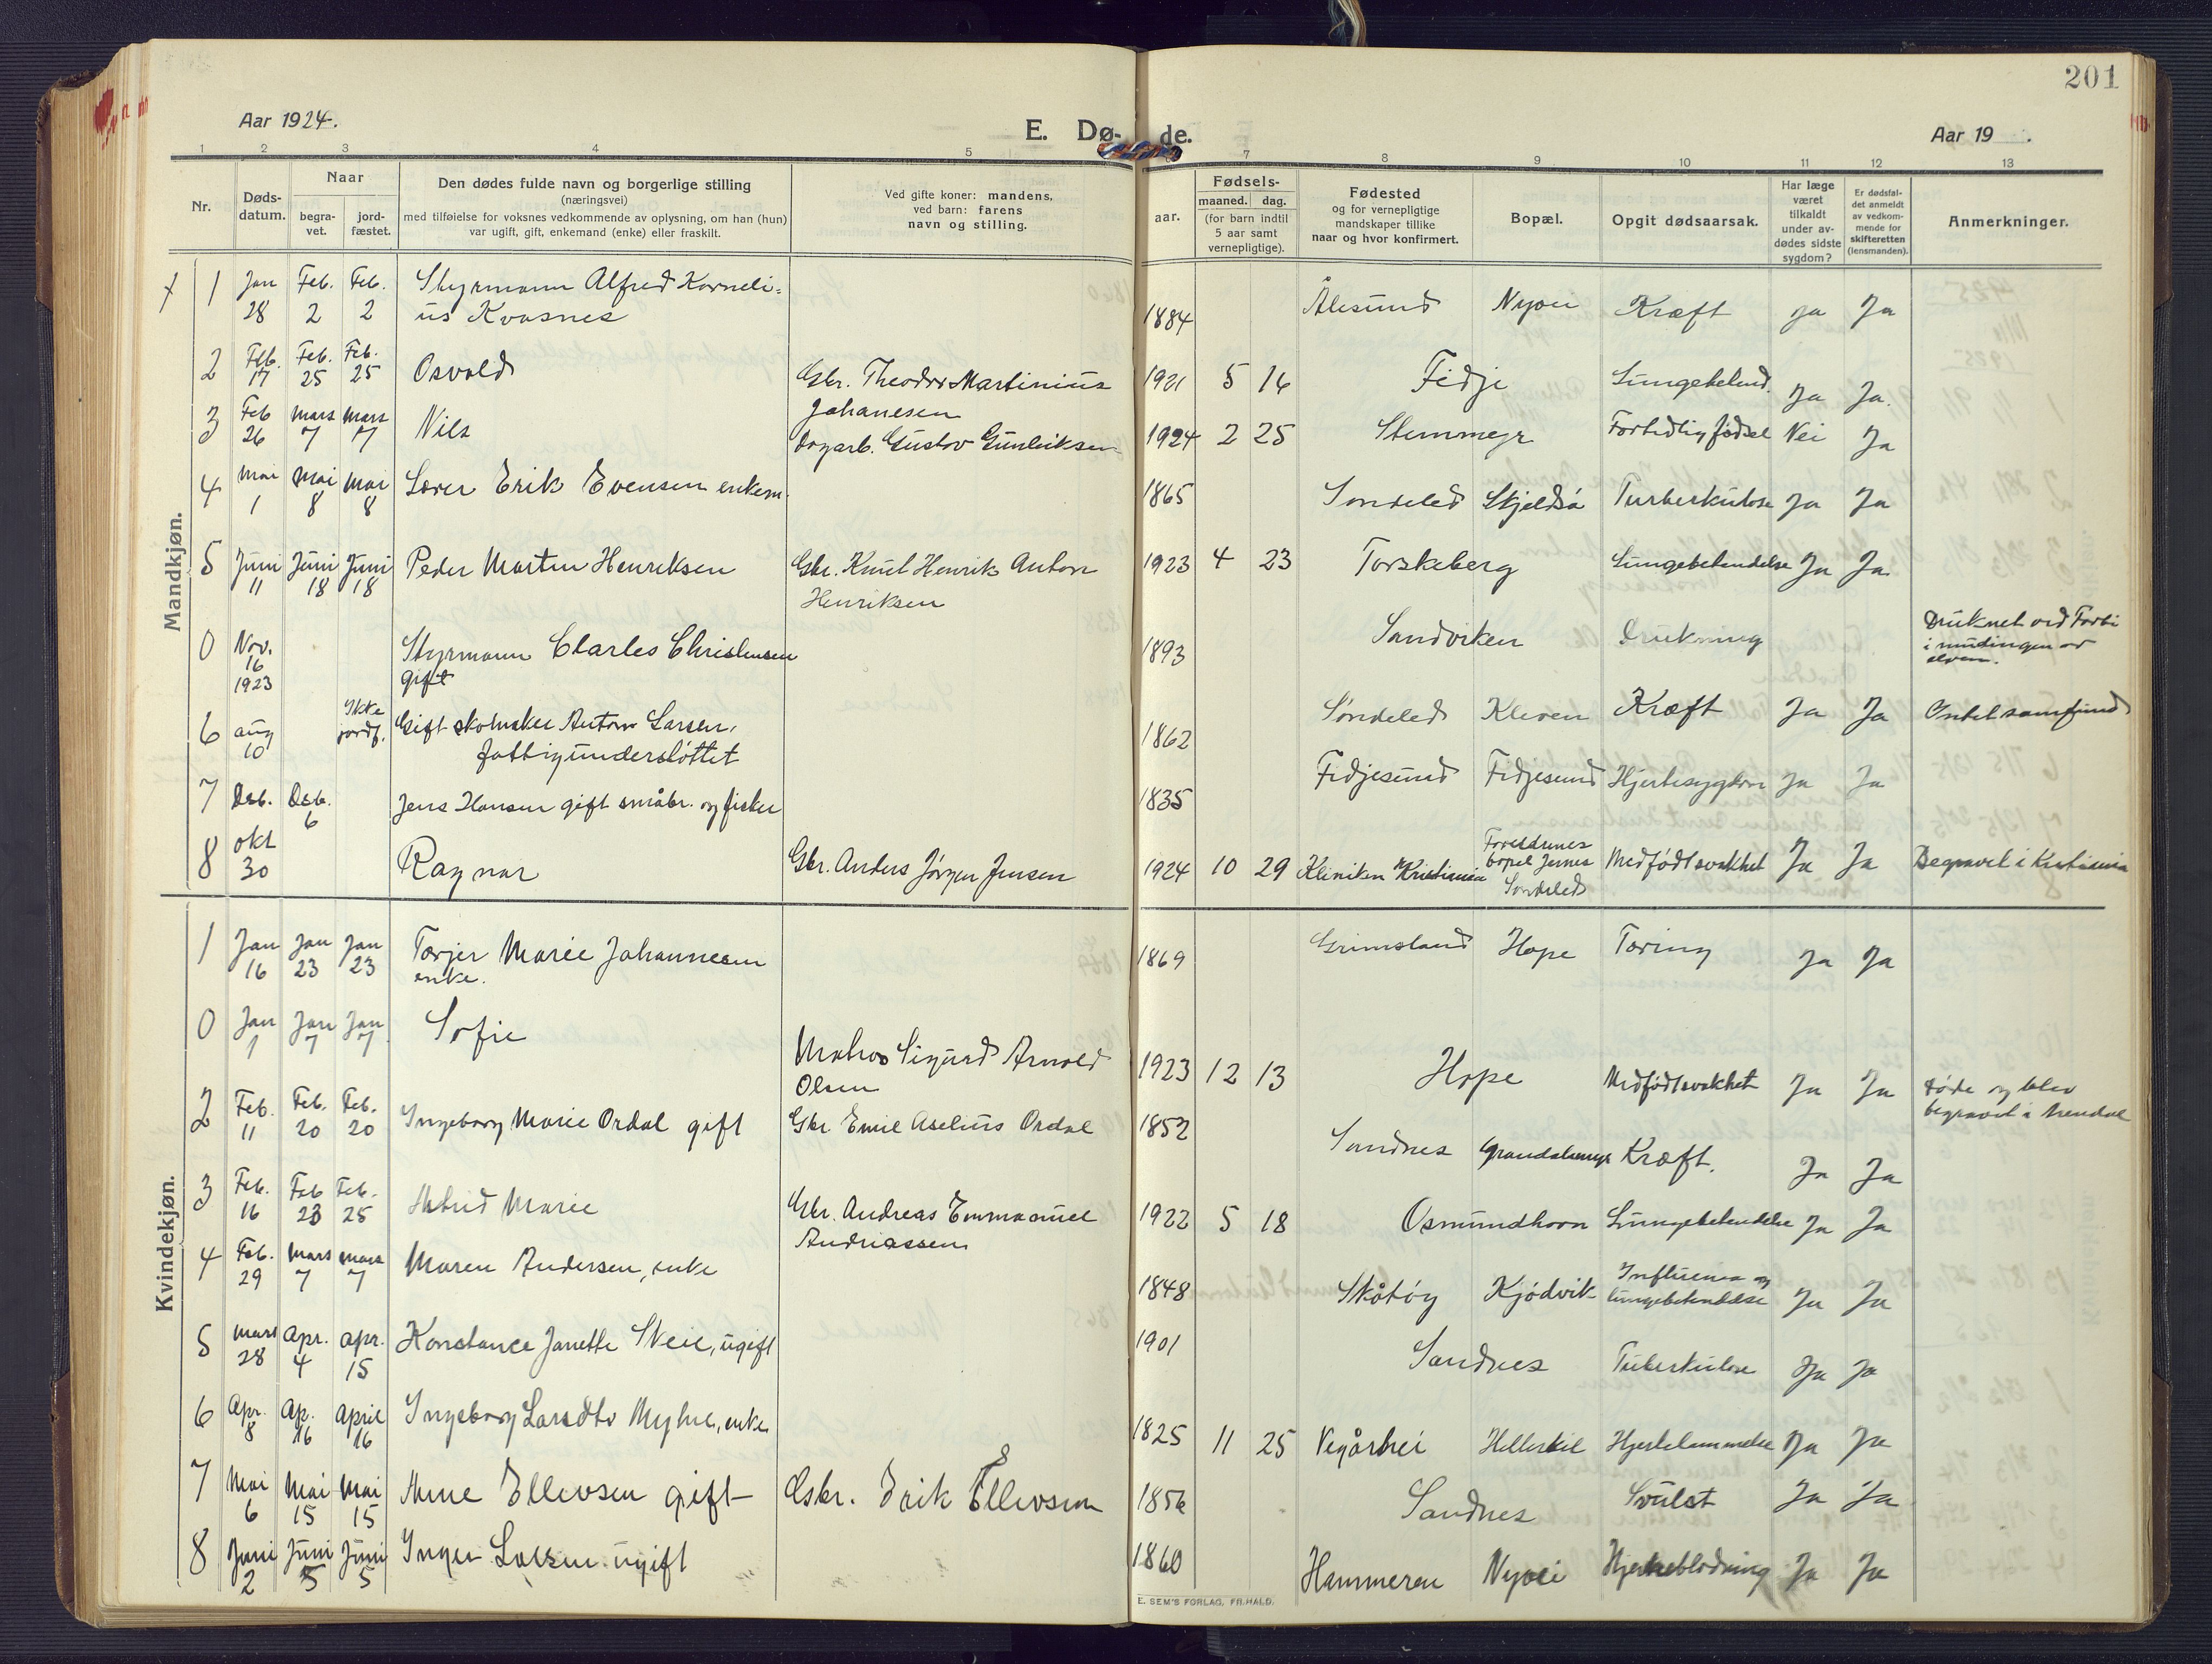 201
Aar 1924.
E. Dø-
de.
Aar 19 .
1 2 3 4 5 7 8 9 10 11 12 13
Nr.
Døds-
datum.
Naar
begra-
vet.
jord-
fæstet.
Den dødes fulde navn og borgerlige stilling
(næringsvei)
med tilføielse for voksnes vedkommende av oplysning, om han (hun)
var ugift, gift, enkemand (enke) eller fraskilt.
Ved gifte koner: mandens,
ved barn: farens
navn og stilling.
aar.
Fødsels-
maaned. dag.
(for barn indtil
5 aar samt
vernepligtige).
Fødested
og for vernepligtige
mandskaper tillike
naar og hvor konfirmert.
Bopæl.
Opgit dødsaarsak.
Har læge
været
tilkaldt
under av-
dødes sidste
sygdom?
Er dødsfal-
det anmeldt
av vedkom-
mende for
skifteretten
(lensmanden).
Anmerkninger.
Mandkjøn.
1 Jan 28 Feb. 2 Feb. 2 Styrmann Alfred Korneli-
us Kvasnes 1884 Ålesund Nyvei Kræft ja Ja
2 Feb. 17 Feb. 25 Feb. 25 Osvald Gbr. Theodor Martinius
Johanesen 1921 5 16 Fidje Lungebetend. Ja Ja.
3 Feb 26 Mars 7 Mars 7 Nils Dagarb. Gustav Gunleiksen 1924 2 25 Stemmyr Fortidlig fødsel Nei Ja
4 Mai 1 Mai 8 Mai 8 Lærer Erik Evensen enkem. 1865 Søndeled Skjeldsø Turberkulose Ja Ja
5 Juni 11 Juni 18 Juni 18 Peder Martin Henriksen Gbr. Knut Henrik Anton
Henriksen 1923 4 23 Torskeberg Lungebetendelse Ja Ja
0 Nov. 16 1923 Styrmann Charles Christensen
gift 1893 Sandviken Drukning Druknet ved
i mundingen av
elven.
6 Aug 10 Ikke jordf. Gift skomaker Anton Larsen,
fattigunderstøttet 1862 Søndeled Kleven Kræft Ja Ja
7 Des. Des. 6 Jens Hansen gift småbr. og fisker 1835 Fidjesund Fidjesund Hjertesygdom Ja Ja
8 Okt 30 Ragnar Gbr. Anders Jørgen Jensen 1924 10 29 Kliniken Kristiania Foreldrenes
bopel Jernes
Søndeled Medfødt svakhet Ja Ja Begravet i Kristiania
Kvindekjøn.
1 Jan 16 Jan 23 Jan 23 Torjer Marie Johannesen
enke. 1869 Grimsland Hope Tæring Ja Ja
0 Jan 1 Jan 7 Jan 7 Sofie Matros Sigurd Arnold
Olsen 1923 12 13 Hope Medfødt svakhet Ja Ja Døde og blev
begravet i Arendal
2 Feb. 11 Feb. 20 Feb. 20 Ingeborg Marie Ordal gift Gbr Emil Aselius Ordal 1852 Sandnes Kræft. Ja Ja
3 Feb. 16 Feb 23 Feb. 25 Astrid Marie Gbr. Andreas Emmanuel
Andreassen 1922 5 18 Osmundhovn Lungebetendelse Ja Ja
4 Feb. 29 Mars 7 Mars 7 Maren Andersen, enke 1848 Skåtøy Kjødvik Influensa og
lungebetendelse Ja Ja
5 Mars 28 Apr. 4 Apr. 15 Konstance Janette Skeie, ugift 1901 Sandnes Tuberkulose Ja Ja
6 Apr. 8 Ap. 16 April 16 Ingeborg Larsdtr Myhre, enke 1825 11 25 Vegårshei Helleskil Hjertelammelse Ja Ja
7 Mai 6 Mai 15 Mai 15 Anne Ellevsen gift Gbr. Erik Ellevsen 1856 Sandnes Svulst Ja Ja
8 Juni 2 Juni 5 Juni 5 Inger Larsen ugift 1860 Hammeren Nyvei Hjerneblødning Ja Ja
E. SEM'S FORLAG, FR.HALD.